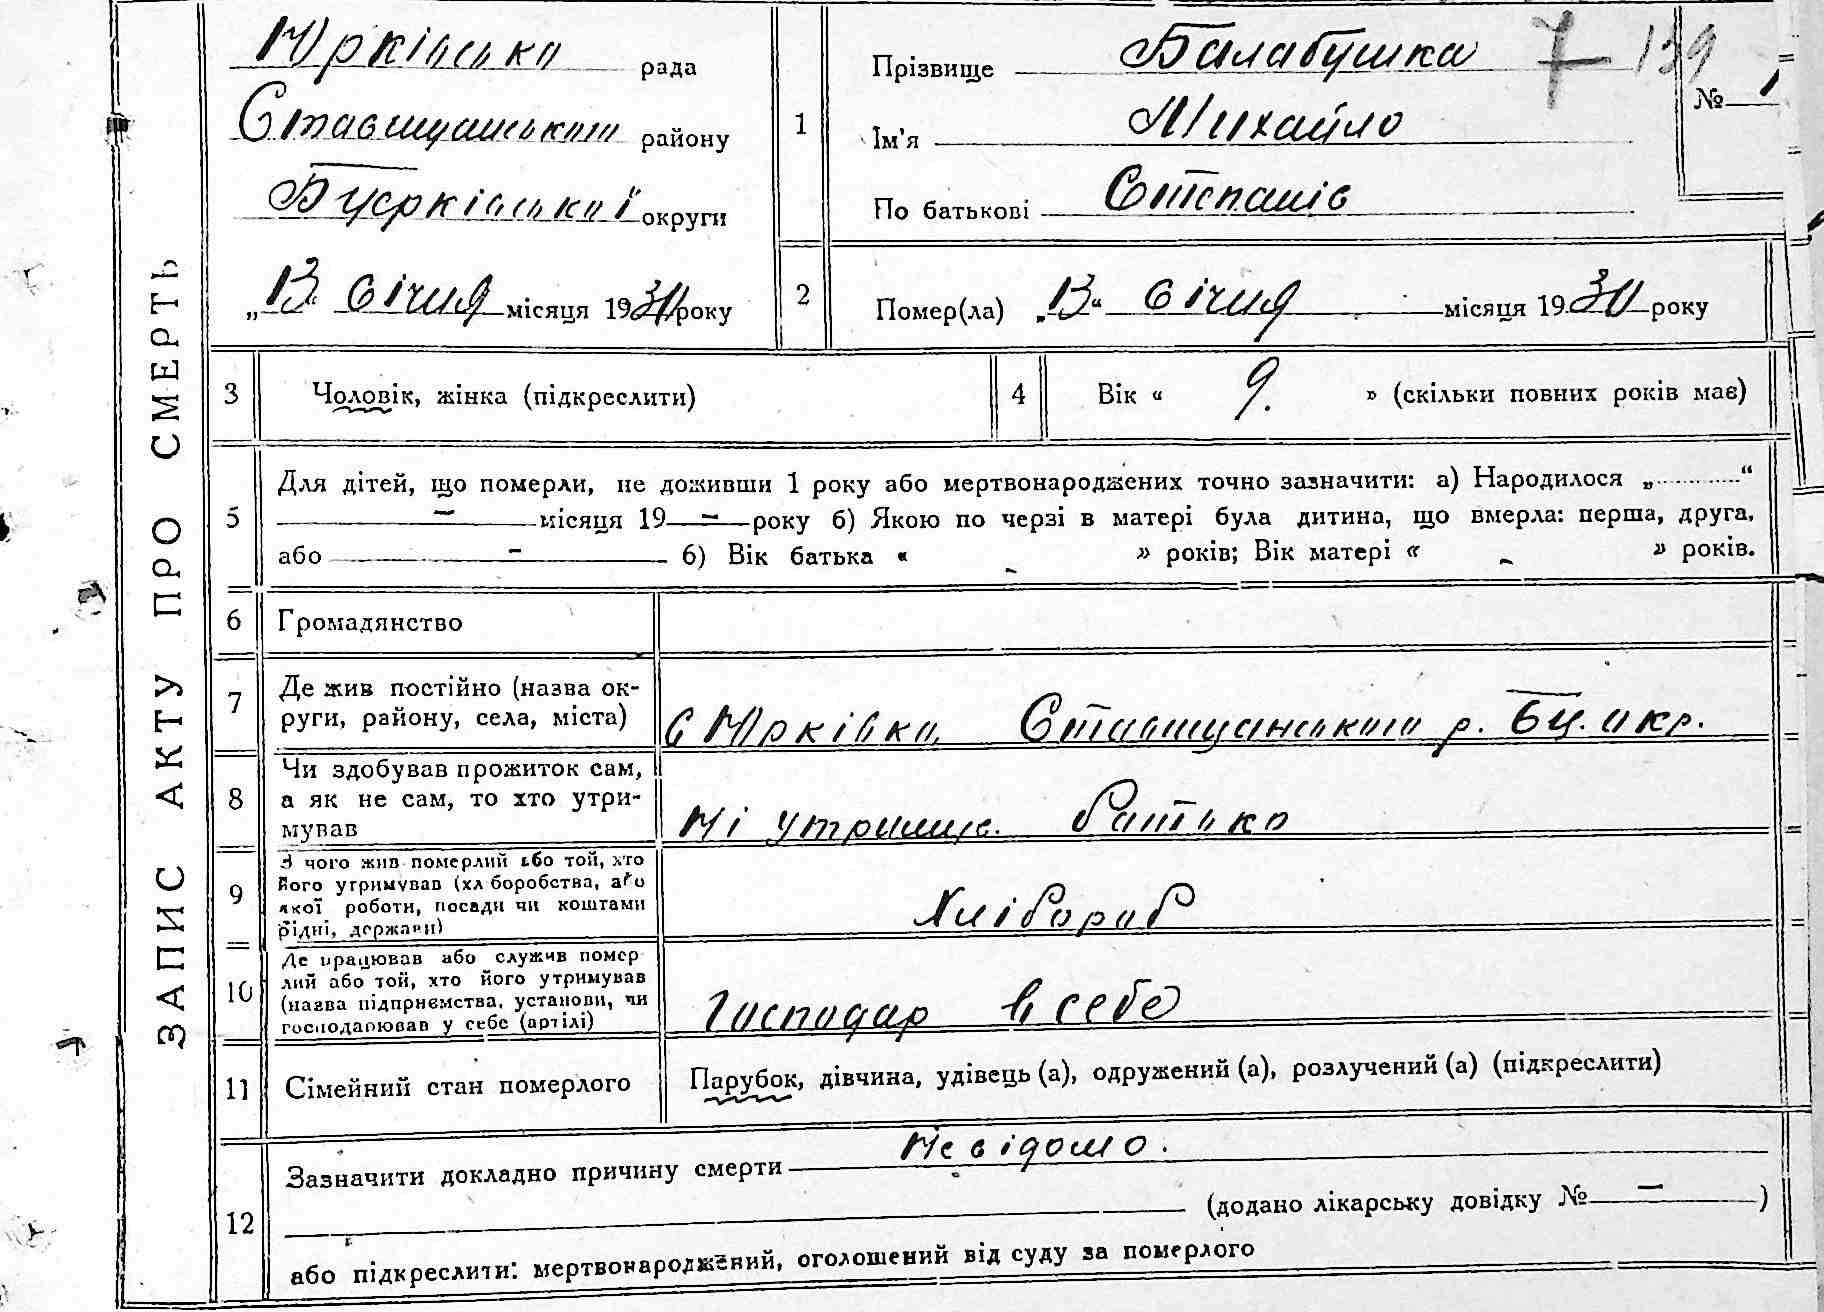 ЗАПИС АКТУ ПРО СМЕРТЬ
Юрківська рада
Ставищанського району
Бцерківської округи
„13“ Січня місяця 1930 року
1
Прізвище Балабушка
Ім'я Михайло
По батькові Степанів
7 139
№ 1
2
Помер(ла) „13“ Січня місяця 1930 року
3
Чоловік, жінка (підкреслити)
4
Вік « 9. » (скільки повних років має)
5
Для дітей, що померли, не доживши 1 року або мертвонароджених точно зазначити: а) Народилося „ “
— місяця 19 — року б) Якою по черзі в матері була дитина, що вмерла: перша, друга,
або — б) Вік батька « - » років; Вік матері « - » років.
6
Громадянство
7
Де жив постійно (назва ок-
руги, району, села, міста)
с Юрківка, Ставищанського р. Бц. окр.
8
Чи здобував прожиток сам,
а як не сам, то хто утри-
мував
Ні утримує. батько
9
З чого жив померлий або той, хто
його утримував (хліборобства, або
якої роботи, посади чи коштами
рідні, держави)
Хлібороб
10
Де працював або служив помер
лий або той, хто його утримував
(назва підприємства, установи, чи
господарював у себе (артілі)
Господар в себе
11
Сімейний стан померлого
Парубок, дівчина, удівець (а), одружений (а), розлучений (а) (підкреслити)
12
Зазначити докладно причину смерти Невідомо.
(додано лікарську довідку № — )
або підкреслити: мертвонароджений, оголошений від суду за померлого